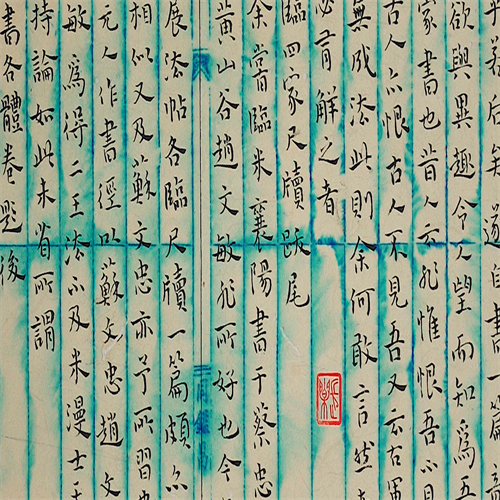 矣遂自書一篇
欲與異趣令人望而知為吾
家書也昔人云非惟恨吾不見
古人亦恨古人不見吾又云右軍
無成法此則余何敢言然
必有解之者
臨四家尺牘跋尾
余嘗臨米襄陽書于蔡忠
黃山谷趙文敏非所好也今
展法帖各臨尺牘一篇頗亦
相似又及蘇文忠亦予所習
元人作書徑以蘇文忠趙文
敏為得二王法不及米漫士
持論如此未省所謂
書各體卷題後